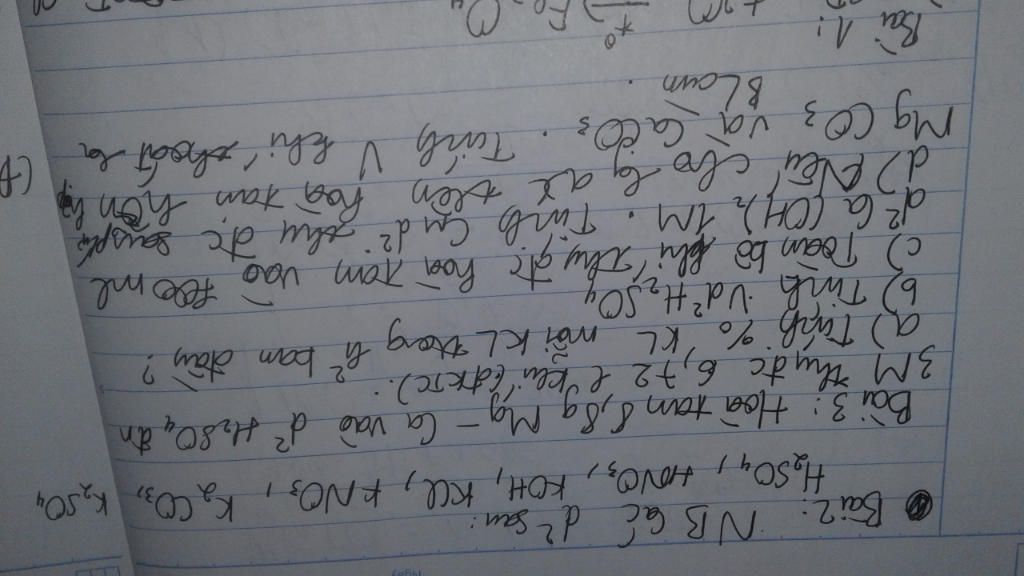 Bài 2: NB các d² sau:
H₂SO₄, HNO₃, KOH, KCl, KNO₃, K₂CO₃, K₂SO₄
Bài 3: Hoà tan 8,8g Mg - Ca vào d² H₂SO₄ đn
3M thu đc 6,72 l khí (đktc).
a) Tính % KL mỗi KL trong h² ban đầu?
b) Tính Vd² H₂SO₄
c) Toàn bộ khí thu đc hoà tan vào ml
d² Ca(OH)₂ 1M. Tính CM d² thu đc sau pứ
d) Nếu cho lg ax trên hoà tan hỗn hợp
MgCO₃ và CaCO₃. Tính V khí thoát ra
BLàm
Bài 1:
t⁰